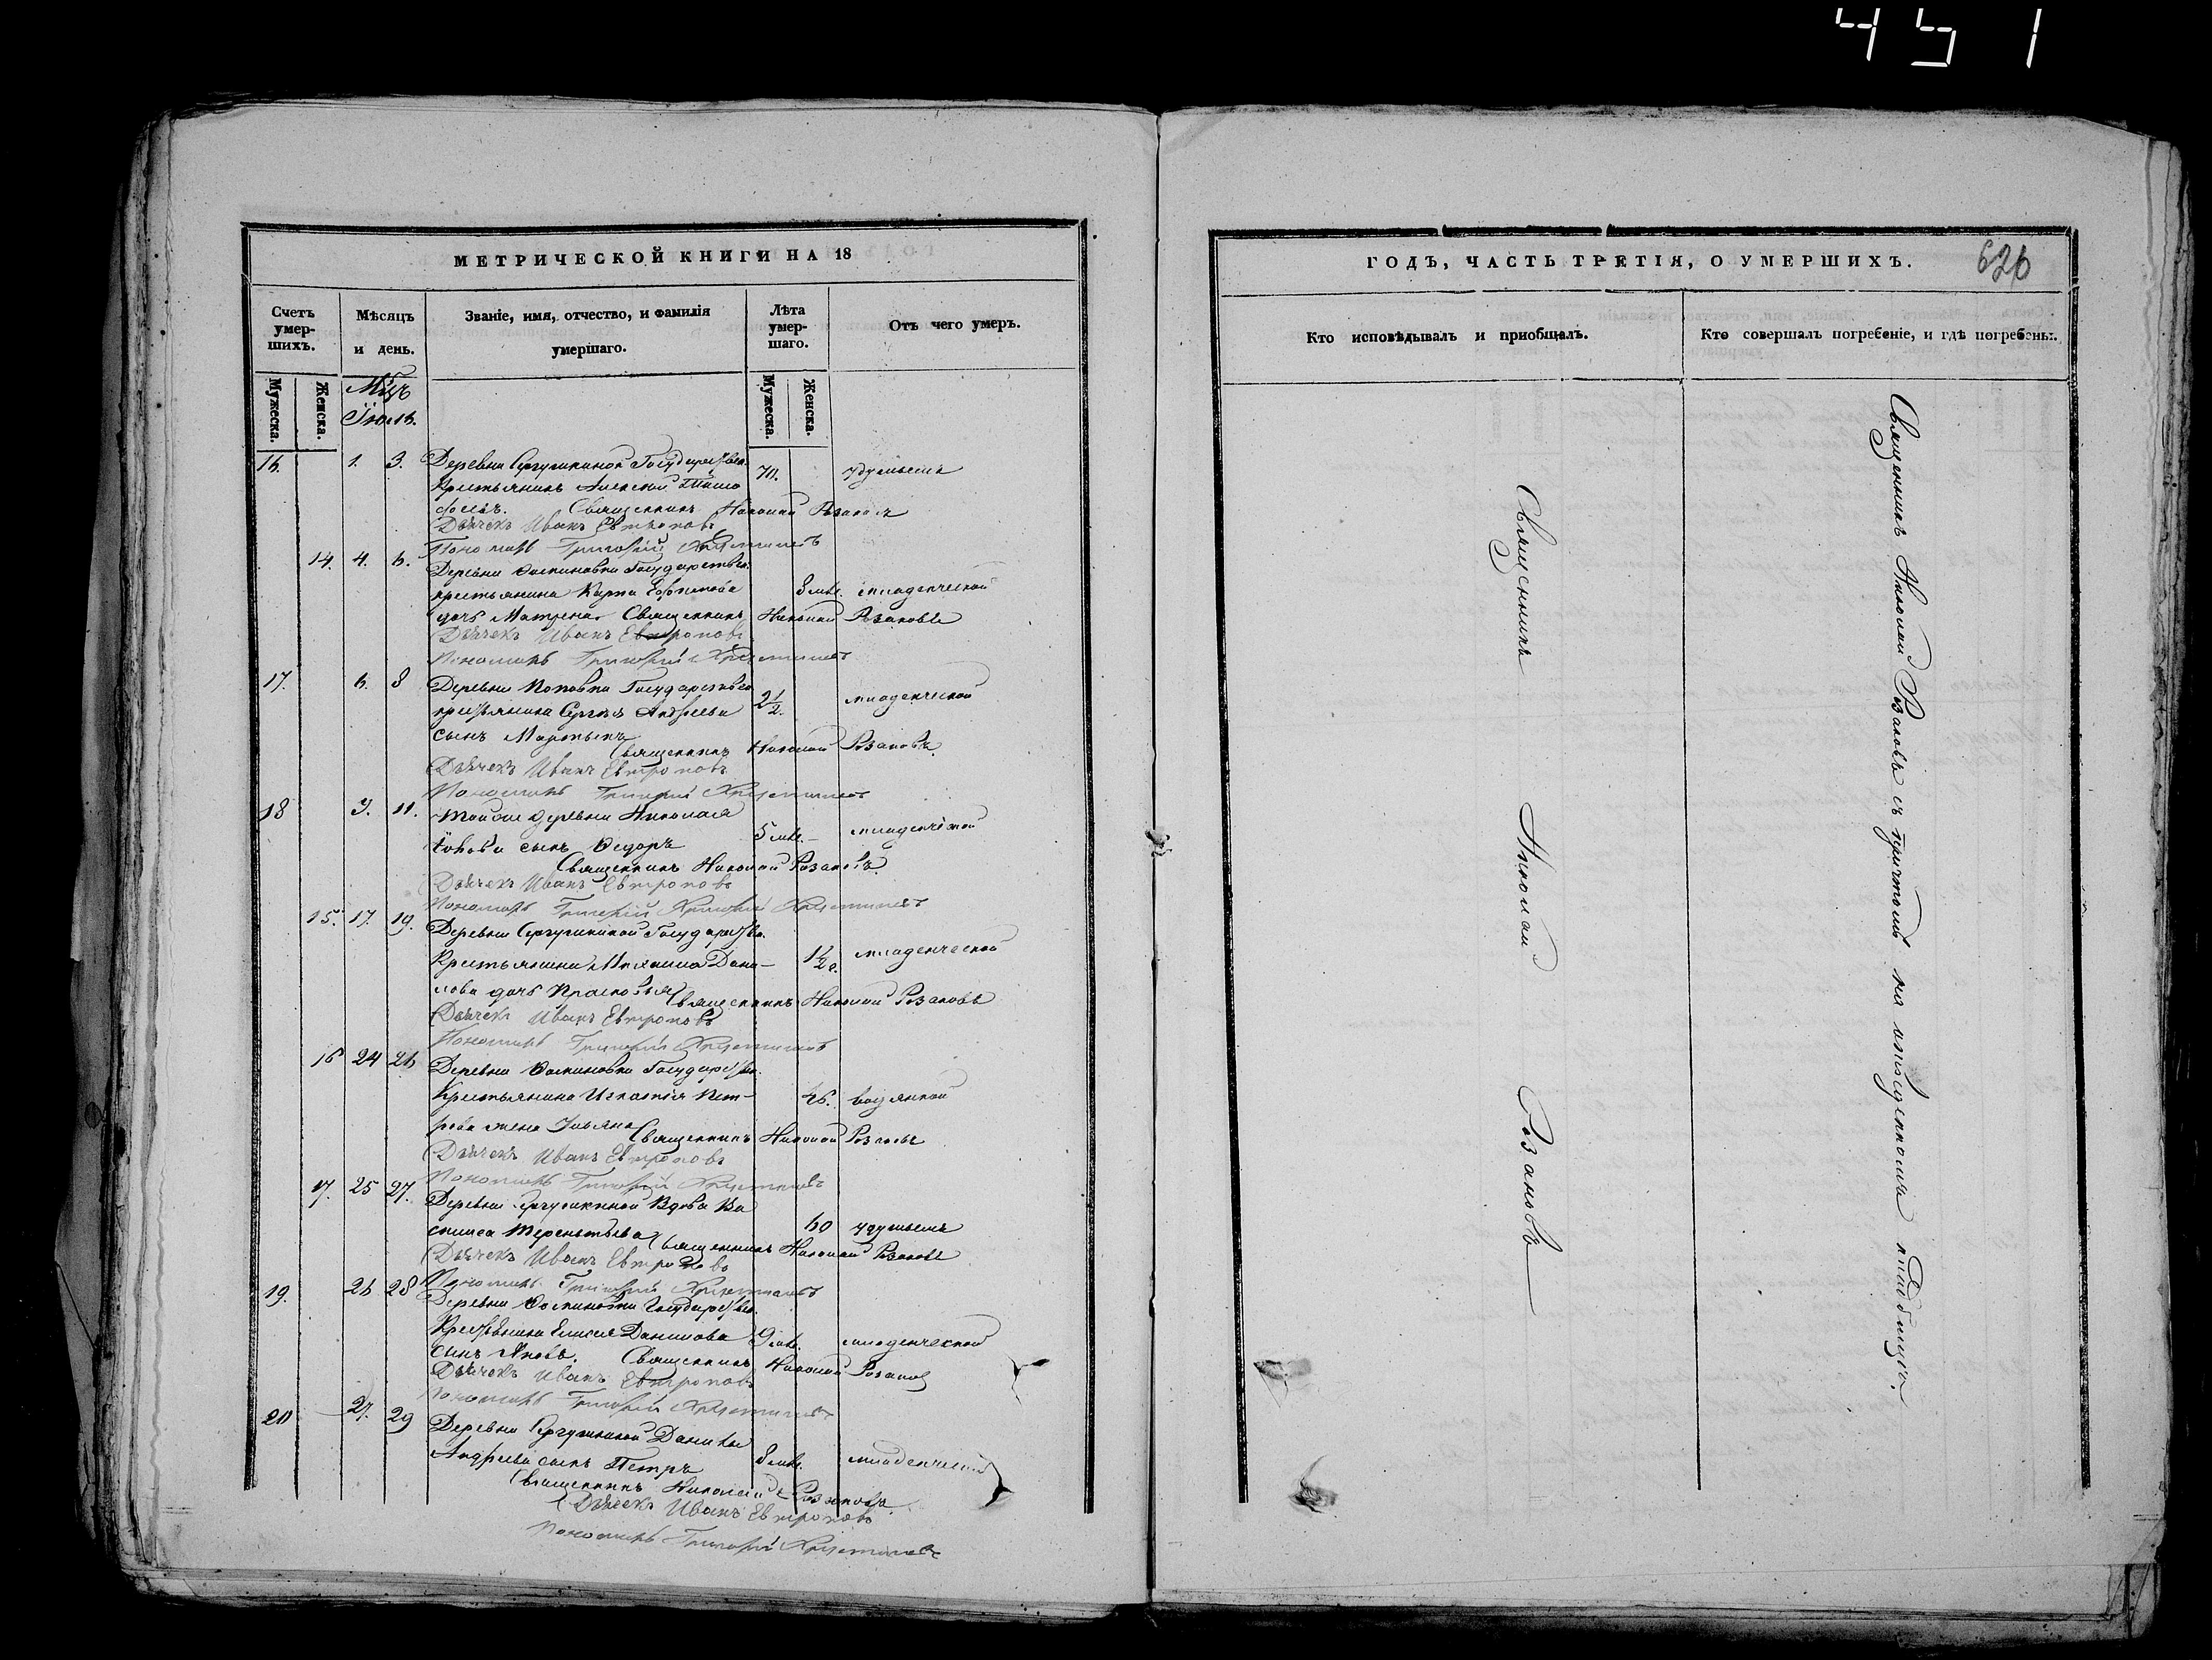 451
МЕТРИЧЕСКОЙ КНИГИ НА 18
Счетъ умер-шихъ.
Мѣсяцъ и день.
Званіе, имя, отчество, и фамилія умершаго.
Лѣта умер-шаго.
Отъ чего умеръ.
Мужеска.
Женска.
Мѣцъ Іюль.
Мужеска.
Женска.
16. 1. 3. Деревни Сергушкиной Государствен. 70. удушьемъ
Крестьянинъ Алексей
Священникъ Николай Розановъ
Дьячекъ Иванъ Евтроповъ
Пономарь Григорій
14. 4. 6. Деревни Государствен.
крестьянина Карпа 8 мѣс. младенческой
дочь Матрена Священникъ Николай Розановъ
Дьячекъ Иванъ Евтроповъ
Пономарь Григорій
17. 6. 8 Деревни Поповки Государствен. 2 1/2. младенческой
крестьянина Сергея Андреева
сынъ Мартынъ
Священникъ Николай Розановъ.
Дьячекъ Иванъ Евтроповъ
Пономарь Григорій
18 9. 11. Той же деревни Николая 5 мѣс. младенческой
сынъ Федоръ
Священникъ Николай Розановъ.
Дьячекъ Иванъ Евтроповъ
Пономарь Григорій
15. 17. 19. Деревни Сергушкиной Государствен.
Крестьянина Дани- 1 1/2 г. младенческой
лова дочь Прасковья Священникъ Николай Розановъ
Дьячекъ Иванъ Евтроповъ
Пономарь Григорій
16 24 26 Деревни Государствен.
Крестьянина Игнатія Пет- 46. водянкой
рова жена Ульяна Священникъ Николай Розановъ
Дьячекъ Иванъ Евтроповъ
Пономарь Григорій
17. 25 27. Деревни Сергушкиной Вдова Ва
силиса Терентьева 60 удушьемъ
Священникъ Николай Розановъ
Дьячекъ Иванъ Евтроповъ
Пономарь Григорій
19. 26 28 Деревни Государствен.
Крестьянина Елисея Данилова 9 мѣс. младенческой
сынъ Яковъ. Священникъ Николай Розановъ
Дьячекъ Иванъ Евтроповъ
Пономарь Григорій
20 27. 29 Деревни Сергушкиной Данилы
Андреева сынъ Петръ 8 мѣс. младенческой
Священникъ Николай Розановъ.
Дьячекъ Иванъ Евтроповъ
Пономарь Григорій
ГОДЪ, ЧАСТЬ ТРЕТІЯ, О УМЕРШИХЪ.
626
Кто исповѣдывалъ и приобщалъ.
Кто совершалъ погребеніе, и гдѣ погребены.
Священникъ Николай Розановъ
Священникъ Николай Розановъ съ причтомъ на кладбищѣ.